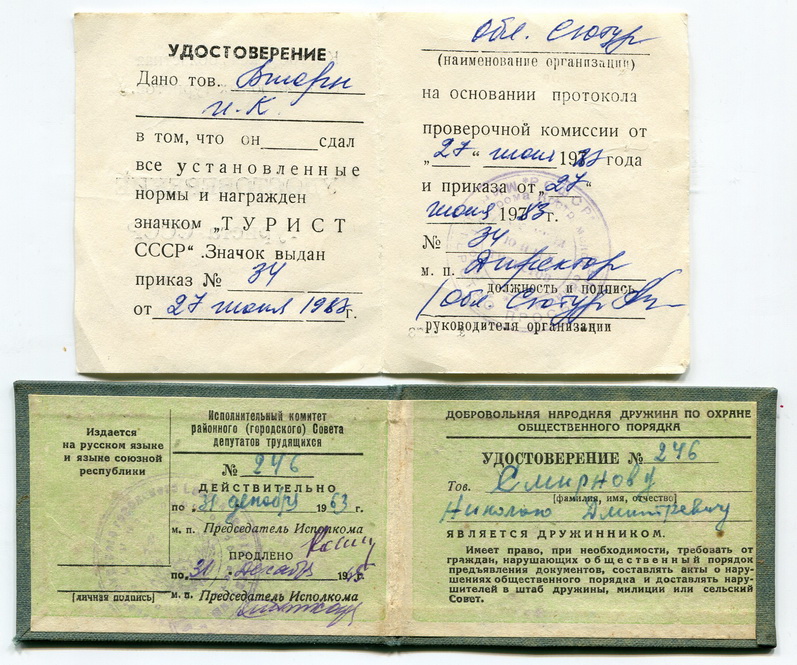 УДОСТОВЕРЕНИЕ
Дано тов.
И. К.
в том, что он сдал
все установленные
нормы и награжден
значком „ТУРИСТ
СССР“. Значок выдан
приказ № 34
от 27 июня 1983 г.
Обл. Сютур
(наименование организации)
на основании протокола
проверочной комиссии от
„27“ июня 1983 года
и приказа от „27“
июня 1983 г.
№ 34
м. п. Директор
должность и подпись
Обл. Сютур
руководителя организации
Издается
на русском языке
и языке союзной
республики
[личная подпись]
Исполнительный комитет
районного (городского) Совета
депутатов трудящихся
№ 246
ДЕЙСТВИТЕЛЬНО
по „31 декабря 1963 г.
м. п. Председатель Исполкома
ПРОДЛЕНО
по „31“ декабря 196 г.
м. п. Председатель Исполкома
ДОБРОВОЛЬНАЯ НАРОДНАЯ ДРУЖИНА ПО ОХРАНЕ
ОБЩЕСТВЕННОГО ПОРЯДКА
УДОСТОВЕРЕНИЕ № 246
Тов. Смирнову
[фамилия, имя, отчество]
Николаю Дмитревичу
ЯВЛЯЕТСЯ ДРУЖИННИКОМ.
Имеет право, при необходимости, требовать от
граждан, нарушающих общественный порядок
предъявления документов, составлять акты о нару-
шениях общественного порядка и доставлять нару-
шителей в штаб дружины, милиции или сельский
Совет.